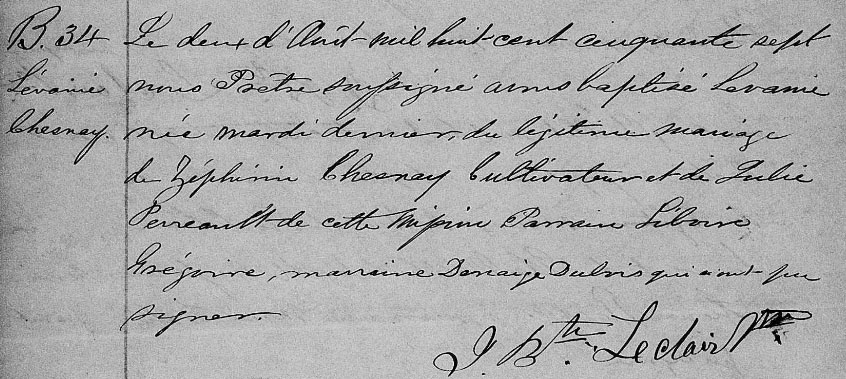 B. 34 Le deux d'Août mil huit cent cinquante sept
Lévanie nous Prêtre soussigné avons baptisé Levanie
Chesnay. née mardi dernier, du légitime mariage
de Zéphirin Chesnay Cultivateur et de Julie
Perreault de cette Mission Parrain Liboire
Grégoire, marraine Dubois qui n'ont pu
signer.
J. Bte. Leclair Ptre